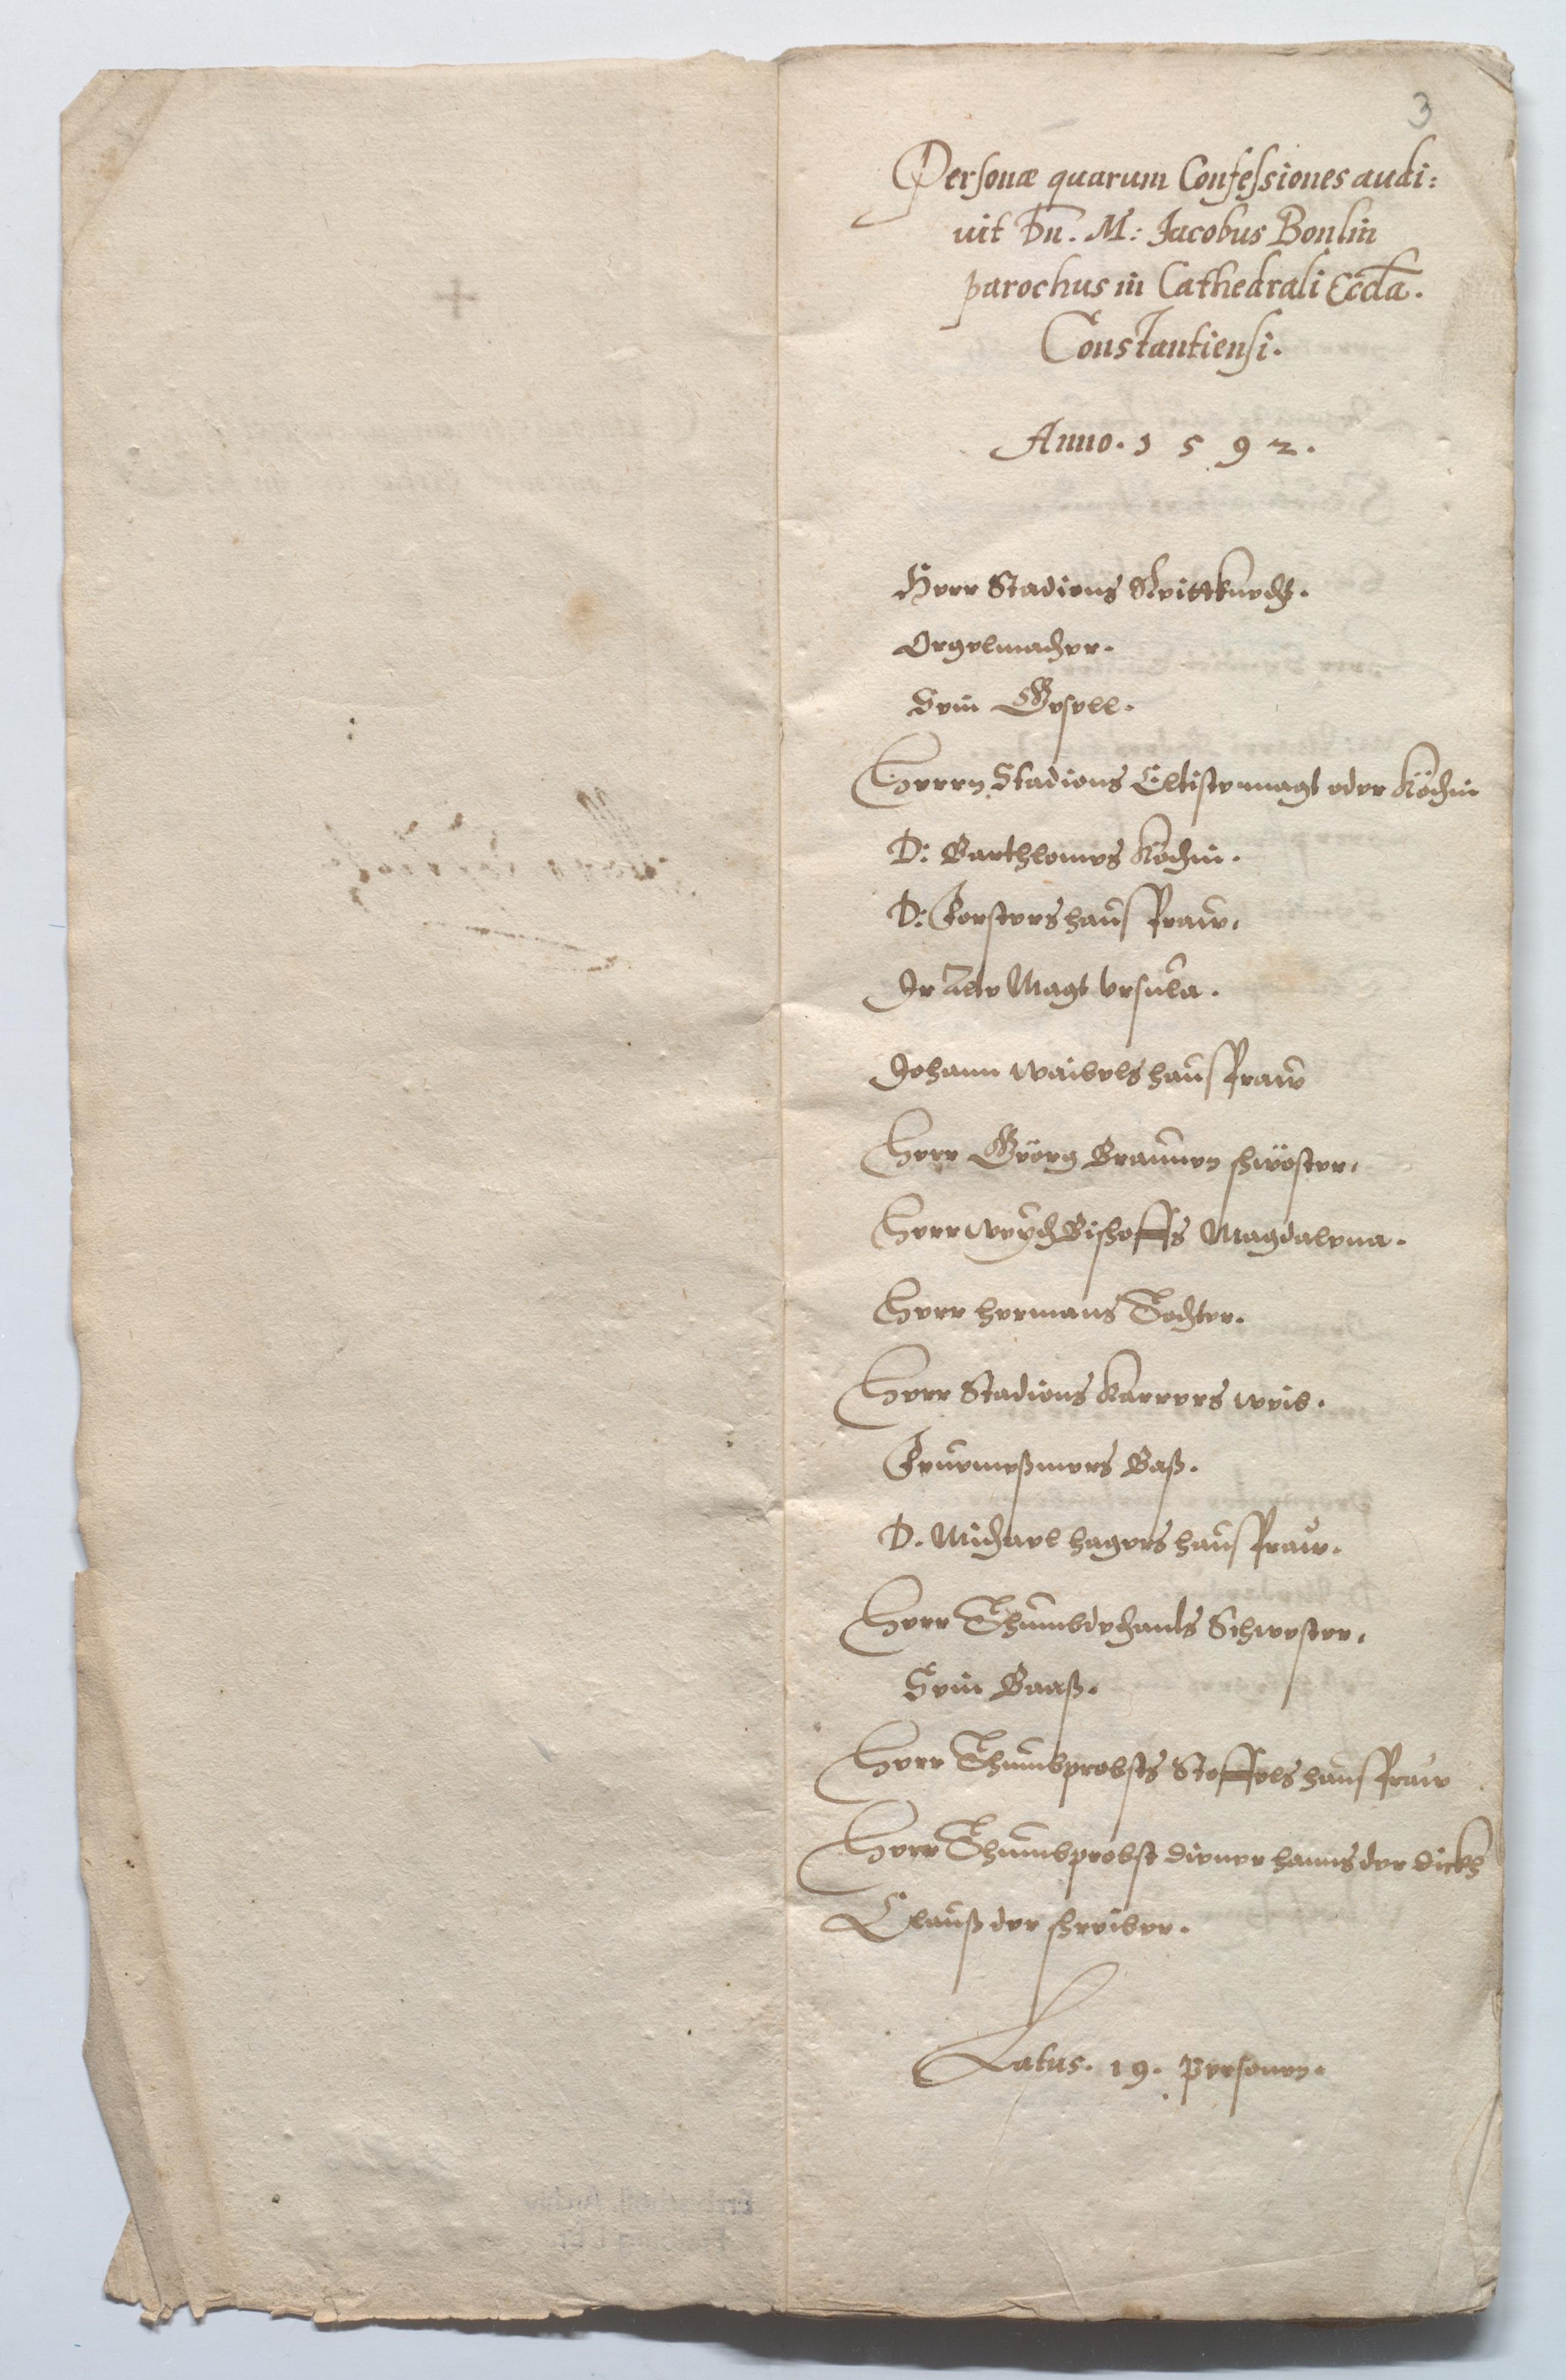 3
Personæ quarum Confessiones audi:
uit Dn. M: Jacobus Bonlin
parochus in Cathedrali Eccla.
Constantiensi.
Anno. 1592.
Herr Stadions Reittknecht.
Orgelmacher.
Sein Gesell.
Herrn Stadions Eltiste magt oder Köchin
D: Barthlomes Köchin.
D: Forsters hausfraw.
Ir alte Magt Vrsula.
Johann Waibels hausfraw
Herr Geörg Braunen schwöster.
Herr Weych Bischoffs Magdalena.
Herr Hermans Tochter.
Herr Stadions Karrers weib.
Fruemeßmers Baß.
D. Michael Hagers hausfraw.
Herr Thumbdechants Schwester.
Sein Baaß.
Herr Thumbprobsts Stoffels hausfraw
Herr Thumbprobst diener Hanns der dickh
Clauß der schreiber.
Latus. 19. Personen.